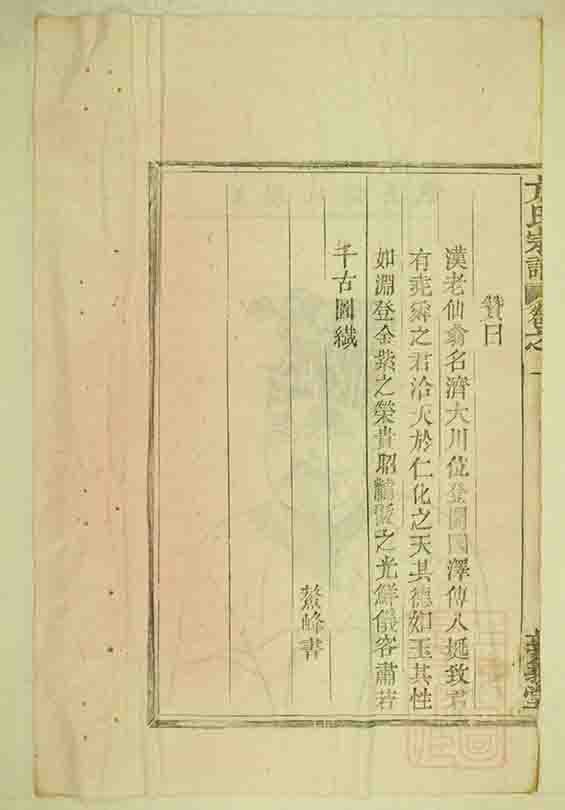 氏宗譜 卷之一
贊曰
漢老仙翁名濟大川位登開國澤傳八挻致君
有堯舜之君洽人於仁化之天其德如玉其性
如淵登金紫之榮貴昭黼黻之光鮮儀容肅若
千古圖繢
鰲峰書